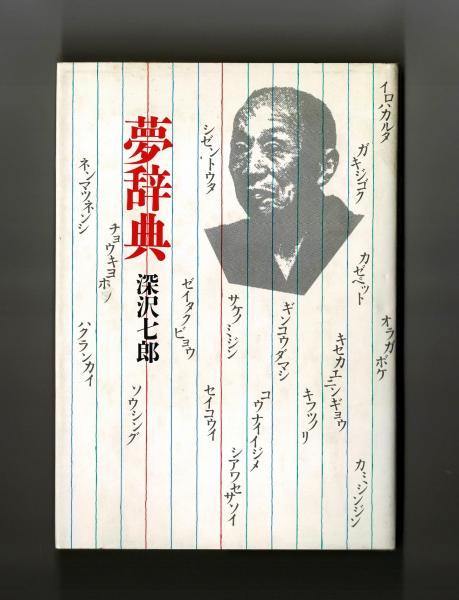 イロハカルタ
ガキジゴク
カゼミット
オラガボケ
キセカエニンギョウ
カミシンジン
ギンコウダマシ
キフヅノリ
コウナイイジメ
サケノミジン
シゼントウタ
セイコウイ
シアワセサソイ
ゼイタクビョウ
夢辞典
深沢七郎
ソウシング
チョウキヨホ
ネンマツネンシ
ハクランカイ